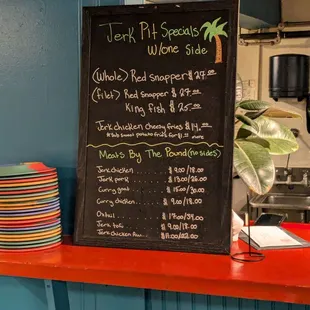 Jerk Pit Specials
w/one Side
(Whole) Red snapper $27.00
(filet) Red snapper $27.00
King fish $25.00
Jerk chicken cheesy fries $14.00
Meats By The Pound (no sides)
Jerk chicken 9.00/18.00
Jerk pork 13.00/26.00
Curry goat 15.00/30.00
Curry chicken 9.00/18.00
Oxtail 19.00/39.00
Jerk tofu 9.00/18.00
Jerk chicken $11.00/22.00